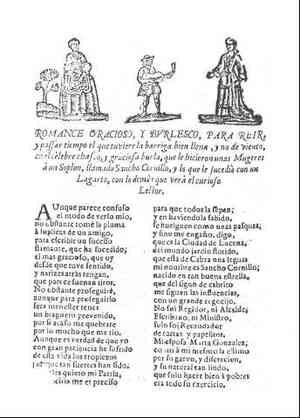 ROMANCE GRACIOSO, Y BURLESCO, PARA REIR,
y passar tiempo el que tuviere la barriga bien llena, y no de viento,
en el celebre chasco, y graciosa burla, que le hicieron unas Mugeres
à un Soplon, llamado Sancho Cornillo, y lo que le sucediò con un
Lagarto, con lo demàs que verà el curioso
Lector.
AUnque parece confuso
el modo de verso mio,
no obstante tomè la pluma
à suplicas de un amigo,
para escribir un sucesso
flamante, que ha sucedido;
el mas gracioso, que oy
desde que tuve sentido,
y narizetas tengan
que parecen
no obstante, proseguirè,
aunque para proseguirlo
serà menester tener
un braguero prevenido,
por si acaso me quebrare
por lo mucho que me rio.
Aunque es verdad de que yo
con gran paciencia he sufrido
de esta vida los tropiezos
que tan suertes han sido,
quiero mi Patria,
me es preciso
para que todos la sepan;
y en haviendola sabido,
se huelguen como unas pasquas,
y sino me engaño, digo,
que es la Ciudad de Lucena,
del mundo jardin florido,
que està de Cabra una legua
mi nombre es Sancho Cornillo;
nacido en tan buena estrella,
que del signo de cabrito
me siguen las influencias,
con un grande regocijo.
No soi Regidor, ni Alcalde,
Escribano, ni Ministro,
solo soi Recaudador
de cartas y papelitos.
Mi esposa Marta Gonzalez,
como à mi mesmo la estimo
por su garvo, y discrecion,
y su natural tan lindo,
que solo hacer bien à pobres
era todo su exercicio.